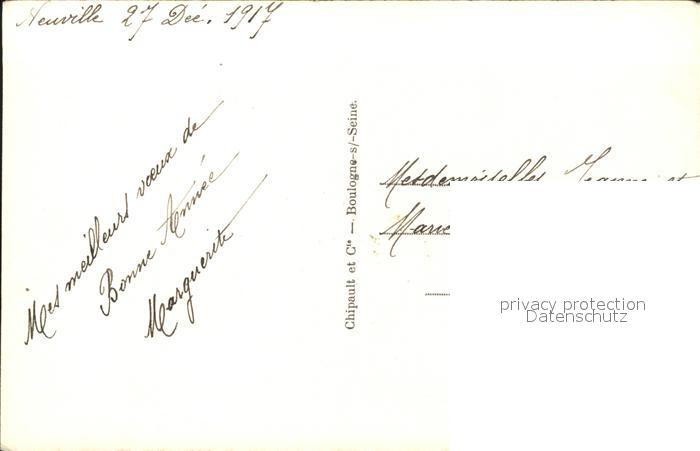 Neuville 27 Déc. 1917
Mes meilleurs vœux de
Bonne Année
Marguerite
Chipault et Cie — Boulogne-s/-Seine.
Mesdemoiselles Jeanne et
Marie
privacy protection
Datenschutz